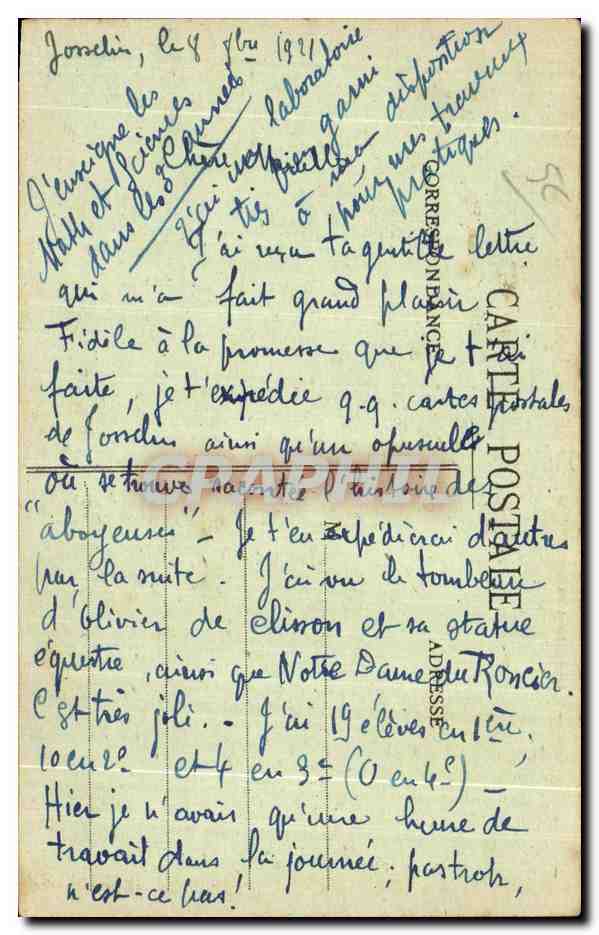 Josselin, le 8 8bre 1921
J'enseigne les
Math et Sciences
dans les 3 années
J'ai un laboratoire
garni
à ma disposition
pour mes travaux
pratiques.
Chère
J'ai reçu ta gentille lettre
qui m'a fait grand plaisir
Fidèle à la promesse que je t'ai
faite, je t'expédie q.q. cartes postales
de Josselin ainsi qu'un opuscule
où se trouve racontée l'histoire des
"aboyeuses" - Je t'en expédierai d'autres
par la suite. J'ai vu le tombeau
d'Olivier de Clisson et sa statue
équestre, ainsi que Notre Dame du Roncier.
C'est très joli. - J'ai 19 élèves en 1ère,
10 en 2e et 4 en 3e (0 en 4e) -
Hier je n'avais qu'une heure de
travail dans la journée; pas trop,
n'est-ce pas!
CARTE POSTALE
CORRESPONDANCE
ADRESSE
M
56
DELCAMPE